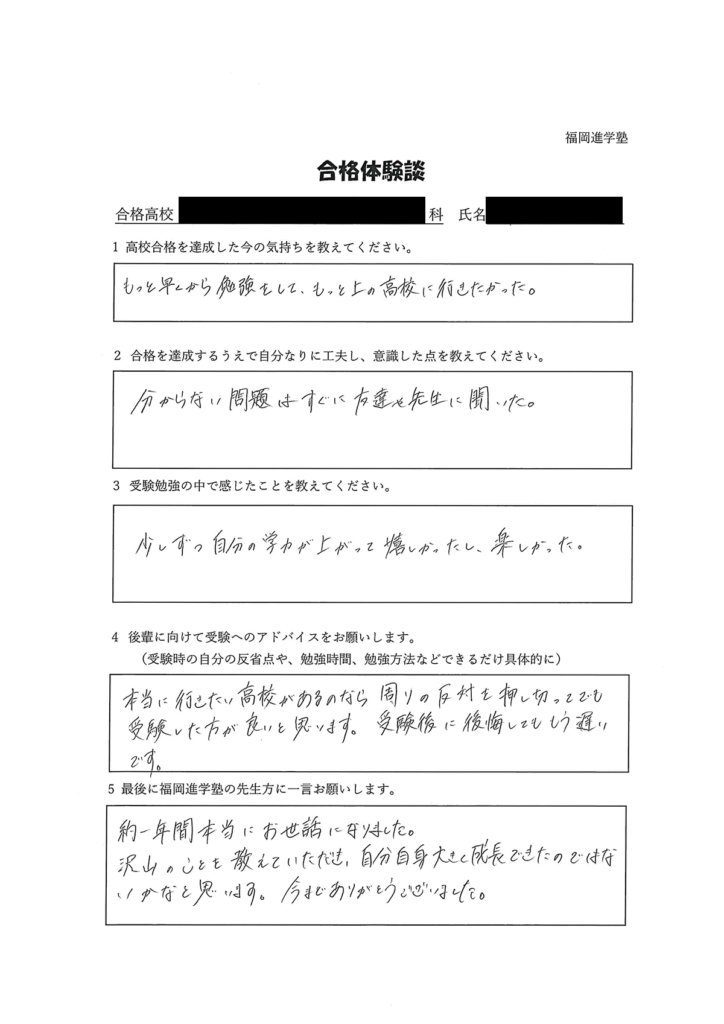 福岡進学塾
合格体験談
合格高校 科 氏名
1 高校合格を達成した今の気持ちを教えてください。
もっと早くから勉強をして、もっと上の高校に行きたかった。
2 合格を達成するうえで自分なりに工夫し、意識した点を教えてください。
分からない問題はすぐに友達や先生に聞いた。
3 受験勉強の中で感じたことを教えてください。
少しずつ自分の学力が上がって嬉しかったし、楽しかった。
4 後輩に向けて受験へのアドバイスをお願いします。
（受験時の自分の反省点や、勉強時間、勉強方法などできるだけ具体的に）
本当に行きたい高校があるのなら周りの反対を押し切ってでも
受験した方が良いと思います。受験後に後悔してももう遅い
です。
5 最後に福岡進学塾の先生方に一言お願いします。
約一年間本当にお世話になりました。
沢山のことを教えていただき、自分自身大きく成長できたのではな
いかなと思います。今までありがとうございました。